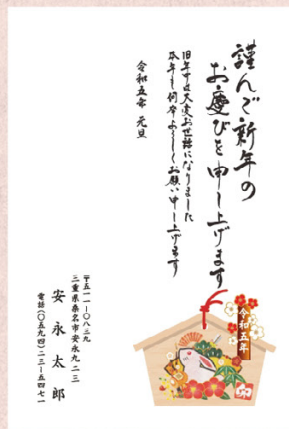 謹んで新年の
お慶びを申し上げます
旧年中は大変お世話になりました
本年も何卒よろしくお願い申し上げます
令和五年 元旦
〒五一一-〇八三九
三重県桑名市安永九二三
安永太郎
電話(〇五九四)二三-五四七一
令和五年
卯